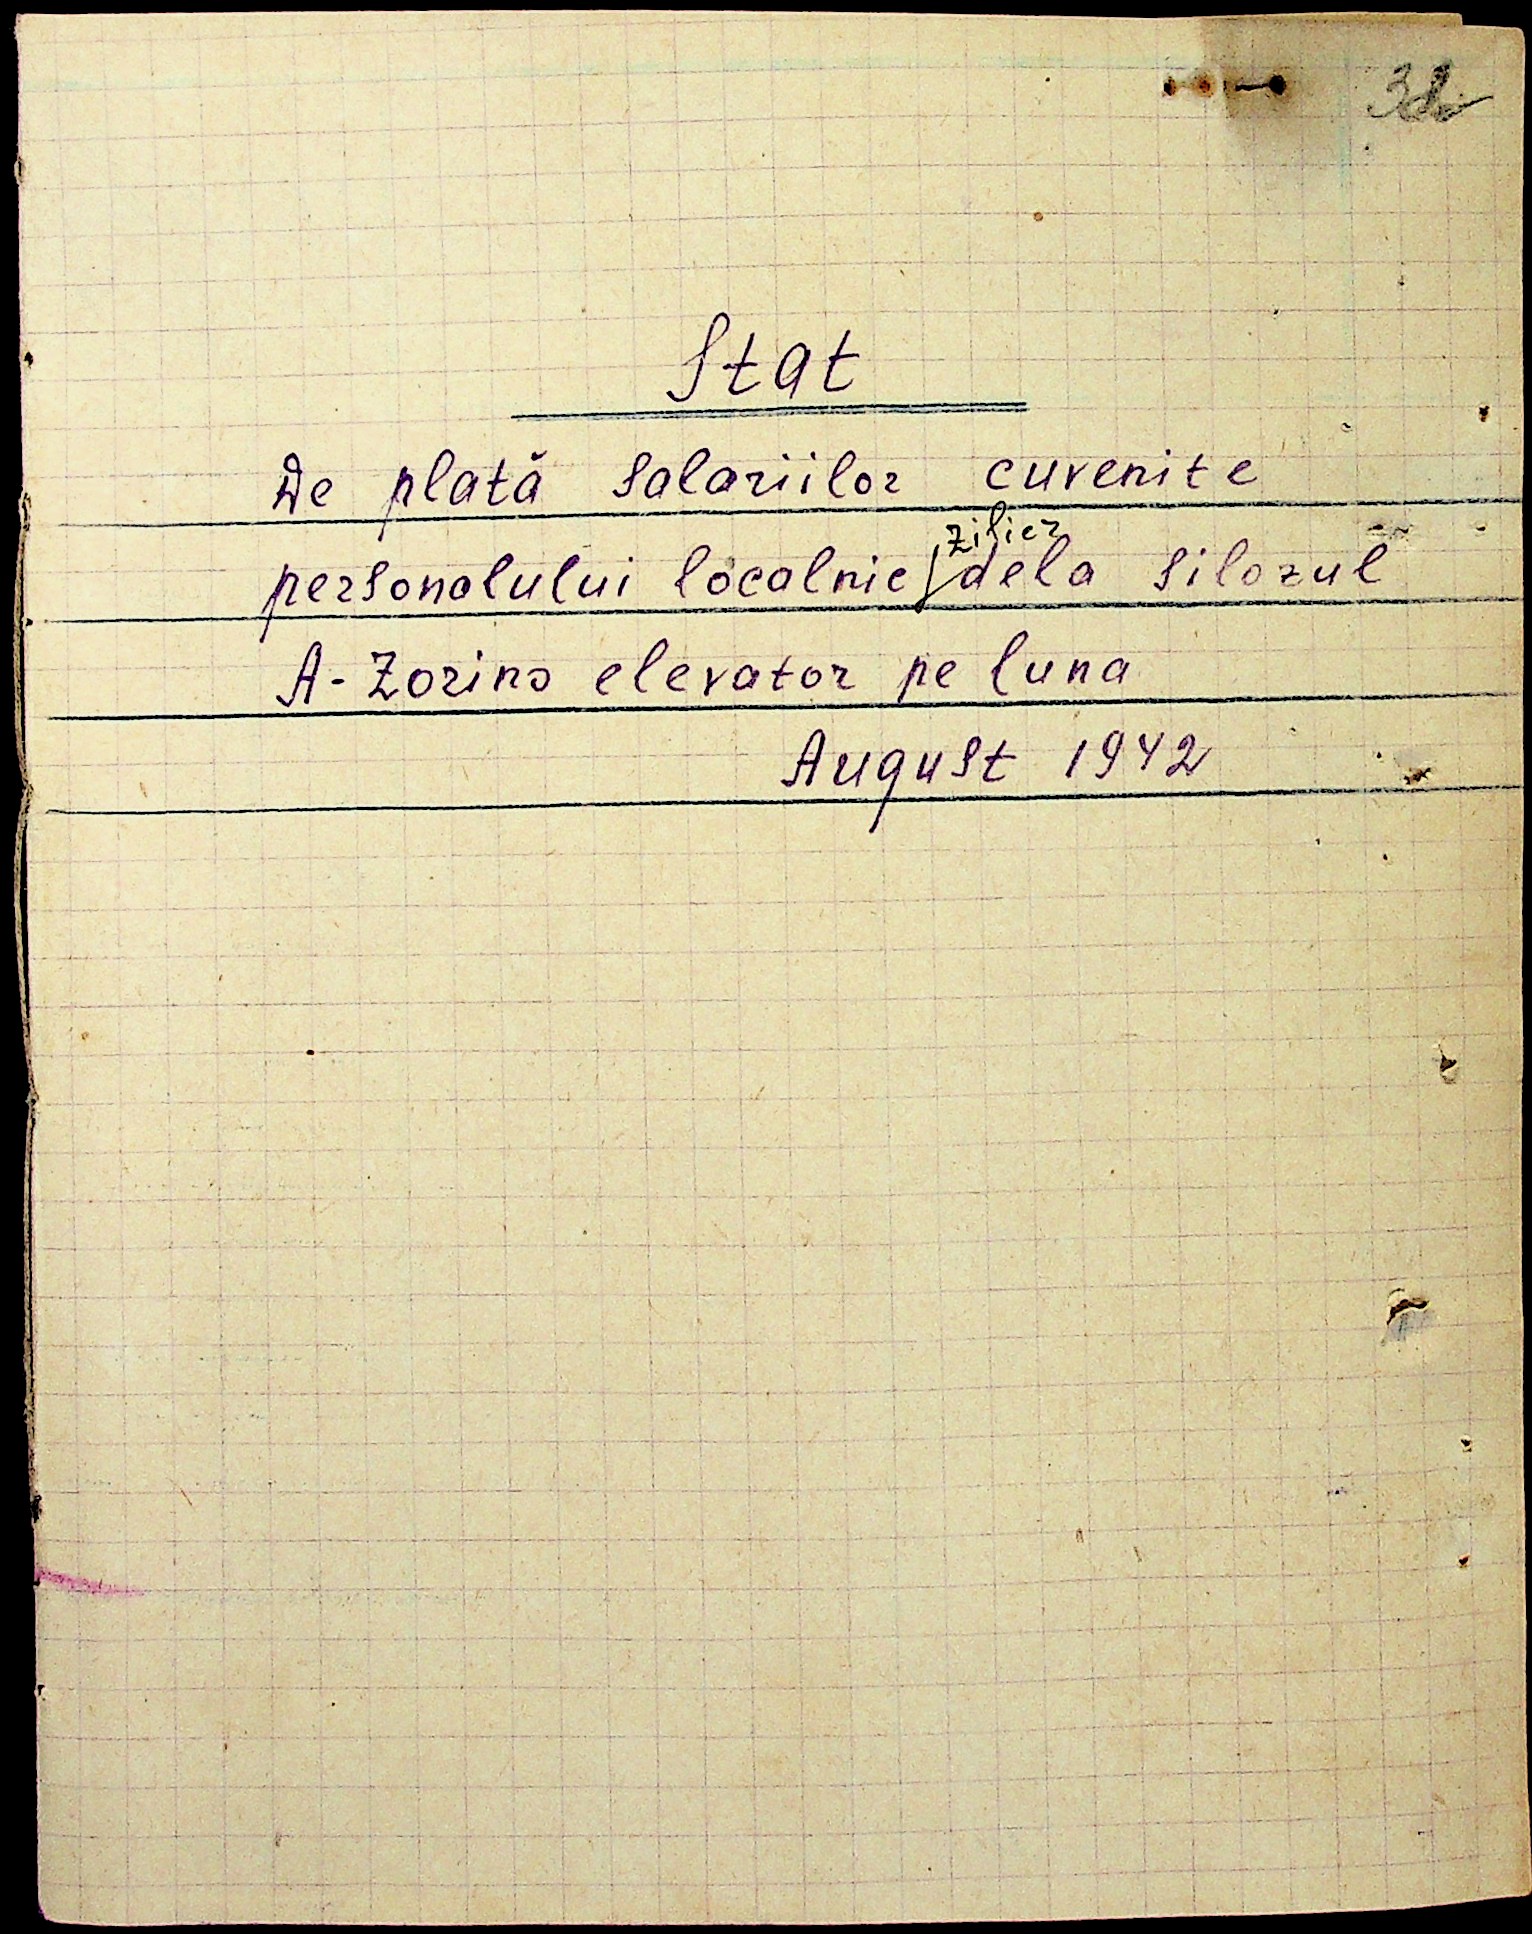 Stat
De plată salariilor cuvenite
zilier
personalului localnic dela silozul
A-Zorino elevator pe luna
August 1942